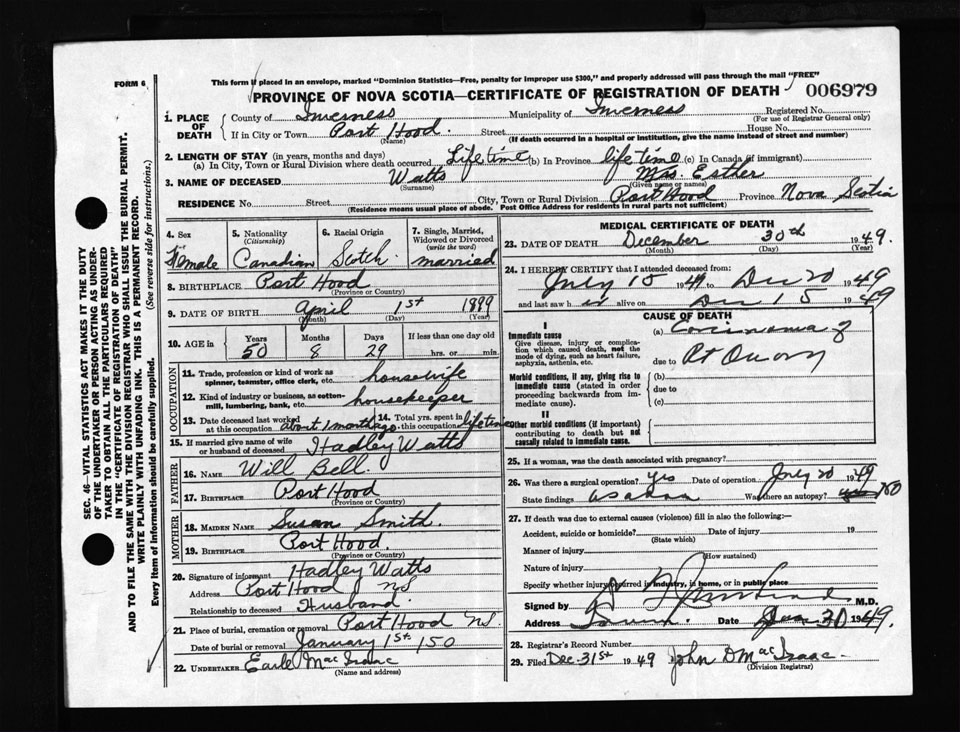 FORM 6
This form if placed in an envelope, marked "Dominion Statistics—Free, penalty for improper use $300," and properly addressed will pass through the mail "FREE"
PROVINCE OF NOVA SCOTIA—CERTIFICATE OF REGISTRATION OF DEATH 006979
1. PLACE OF DEATH
County of Inverness Municipality of Inverness Registered No.
(For use of Registrar General only)
If in City or Town Port Hood. Street House No.
(Name) (If death occurred in a hospital or institution, give the name instead of street and number)
2. LENGTH OF STAY (in years, months and days)
(a) In City, Town or Rural Division where death occurred Life time (b) In Province life time (c) In Canada (if immigrant)
3. NAME OF DECEASED Watts Mrs. Esther
(Surname) (Given name or names)
RESIDENCE No. Street City, Town or Rural Division Port Hood Province Nova Scotia
(Residence means usual place of abode. Post Office Address for residents in rural parts not sufficient)
4. Sex Female
5. Nationality (Citizenship) Canadian
6. Racial Origin Scotch
7. Single, Married, Widowed or Divorced (write the word) married
8. BIRTHPLACE Port Hood
(Province or Country)
9. DATE OF BIRTH April 1st 1899
(Month) (Day) (Year)
10. AGE in Years Months Days If less than one day old
50 8 29 hrs. or min.
OCCUPATION
11. Trade, profession or kind of work as spinner, teamster, office clerk, etc. housewife
12. Kind of industry or business, as cotton-mill, lumbering, bank, etc. housekeeper
13. Date deceased last worked at this occupation about 1 month ago 14. Total yrs. spent in this occupation life time
15. If married give name of wife or husband of deceased Hadley Watts
FATHER
16. NAME Will Bell.
17. BIRTHPLACE Port Hood
(Province or Country)
MOTHER
18. MAIDEN NAME Susan Smith.
19. BIRTHPLACE Port Hood.
(Province or Country)
20. Signature of informant Hadley Watts
Address Port Hood NS
Relationship to deceased Husband.
21. Place of burial, cremation or removal Port Hood NS
Date of burial or removal January 1st 150
22. UNDERTAKER Earle Mac Isaac
(Name and address)
MEDICAL CERTIFICATE OF DEATH
23. DATE OF DEATH December 30th 1949.
(Month) (Day) (Year)
24. I HEREBY CERTIFY that I attended deceased from:
July 15 1949 to Dec 20 1949
and last saw h alive on Dec 15 1949
CAUSE OF DEATH
I
Immediate cause
Give disease, injury or complication which caused death, not the mode of dying, such as heart failure, asphyxia, asthenia, etc.
(a) Carcinoma of
due to Rt Ovary
Morbid conditions, if any, giving rise to immediate cause (stated in order proceeding backwards from immediate cause).
(b)
due to
(c)
II
Other morbid conditions (if important) contributing to death but not causally related to immediate cause.
25. If a woman, was the death associated with pregnancy?
26. Was there a surgical operation? Yes Date of operation July 20 1949
State findings Was there an autopsy? no
27. If death was due to external causes (violence) fill in also the following:—
Accident, suicide or homicide? Date of injury 19
(State which)
Manner of injury
(How sustained)
Nature of injury
Specify whether injury occurred in industry, in home, or in public place
Signed by M.D.
Address Date 30 1949.
28. Registrar's Record Number
29. Filed Dec. 31st 1949 John D Mac Isaac.
(Division Registrar)
SEC. 46—VITAL STATISTICS ACT MAKES IT THE DUTY OF THE UNDERTAKER OR PERSON ACTING AS UNDERTAKER TO OBTAIN ALL THE PARTICULARS REQUIRED IN THE "CERTIFICATE OF REGISTRATION OF DEATH" AND TO FILE THE SAME WITH THE DIVISION REGISTRAR WHO SHALL ISSUE THE BURIAL PERMIT.
WRITE PLAINLY WITH UNFADING INK. THIS IS A PERMANENT RECORD.
Every item of Information should be carefully supplied. (See reverse side for instructions.)